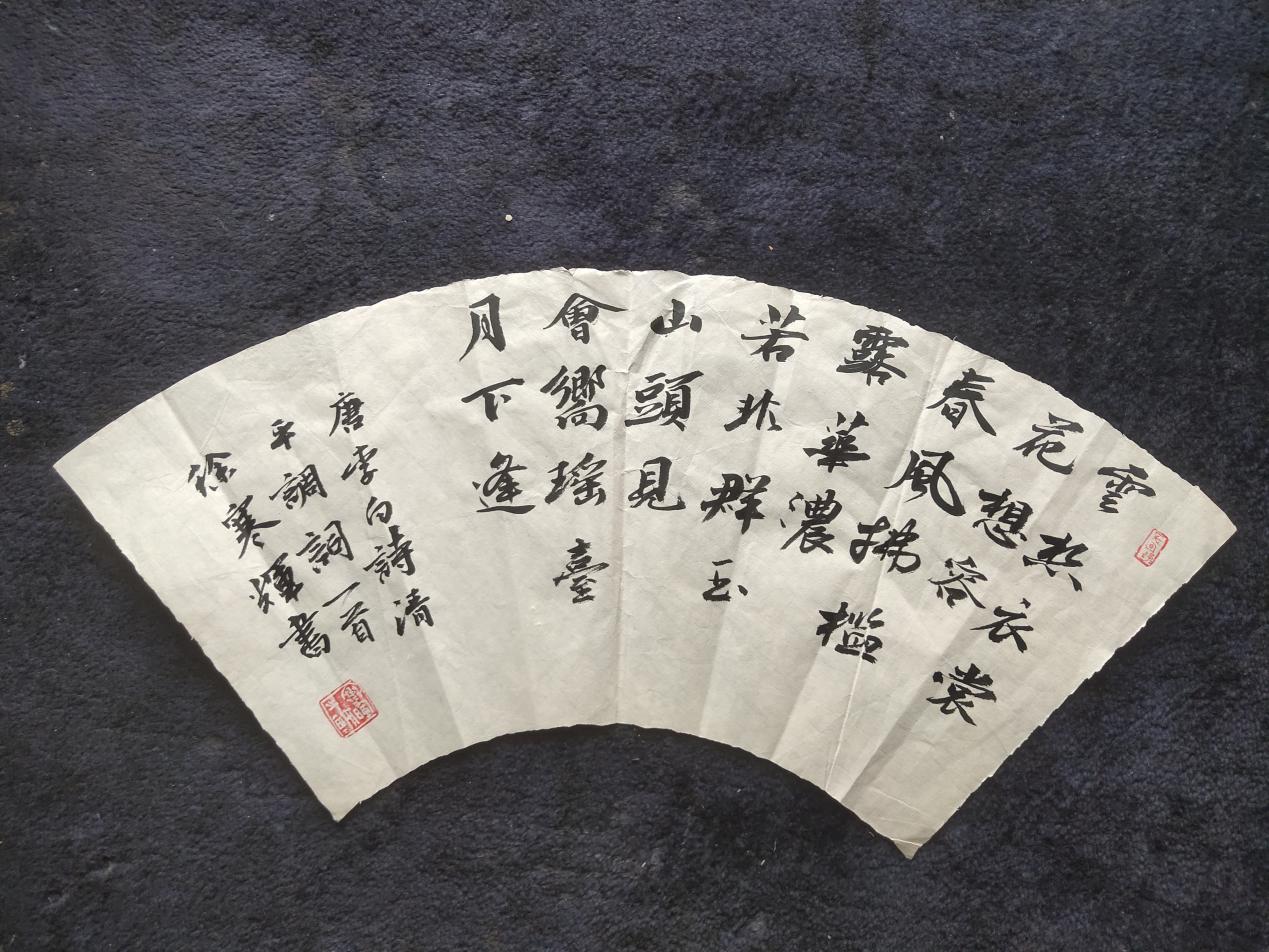 雲想衣裳
花想容
春風拂檻
露華濃
若非群玉
山頭見
會嚮瑶臺
月下逢
唐李白詩清
平調詞一首
徐寒輝書